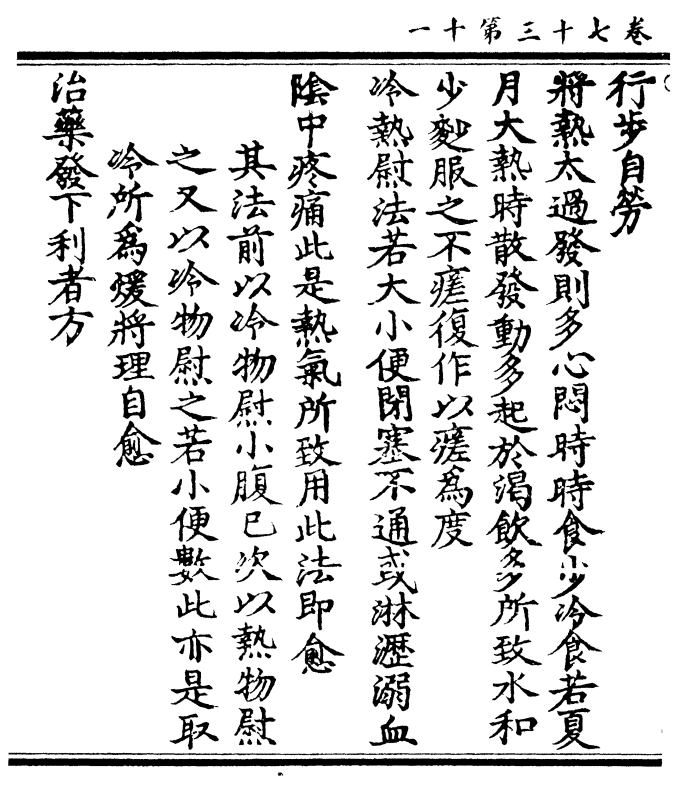 卷七十三第十一
行步自勞
將熱太過發則多心悶時時食少冷食若夏
月大熱時散發動多起於渴飲多所致水和
少麨服之不瘥復作以瘥為度
冷熱慰法若大小便閉塞不通或淋瀝溺血
陰中疼痛此是熱氣所致用此法即愈
其法前以冷物慰小腹已次以熱物慰
之又以冷物慰之若小便數此亦是取
冷所為煖將理自愈
治藥發下利者方